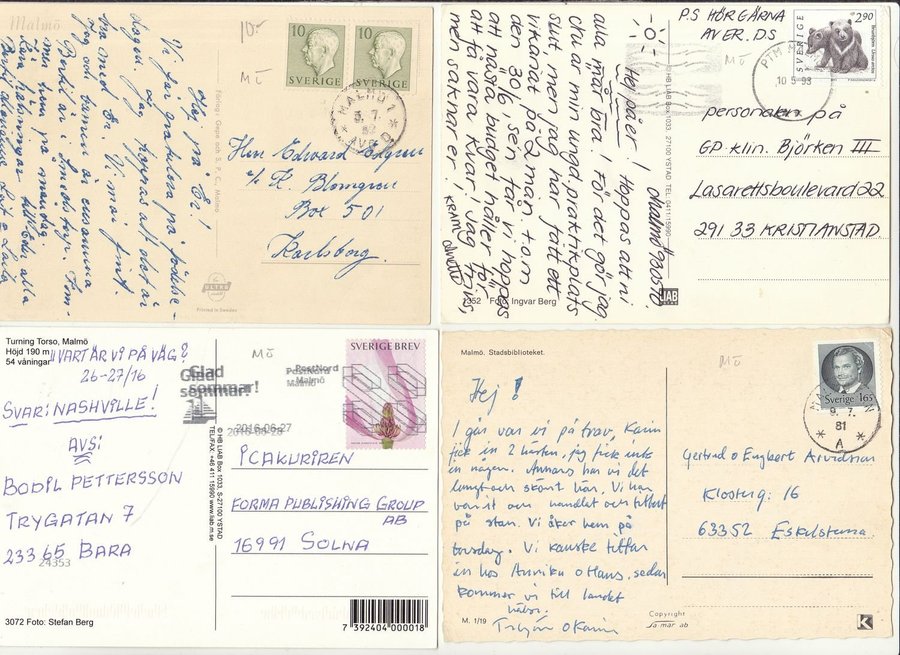 Malmö
10:-
MÖ
10
SVERIGE
10
SVERIGE
MALMÖ
3. 7.
AVG
Hej på Er!
Vi får gratulera på födelse-
dagen. Jag hoppas allt
Vi mår fint.
Jag och
Bertil är i Smedstorp. Tom
Förlag: Gape och S. P. C. Malmö
ULTRA
Printed in Sweden
Herr Edward
c/o H. Blomgren
Box 501
Karlsborg.
P.S HÖR GÄRNA
AV ER. D.S
MÖ
SVERIGE
2,90
10 5 93
Malmö 930510
Hej på er! Hoppas att ni
alla mår bra! För det gör jag.
Nu är min ungd.praktikplats
slut men jag har fått ett
vikariat på 2 mån t.o.m
den 30/6, sen får vi hoppas
att nästa budget håller för
att få vara kvar. Jag trivs,
men saknar er!
© HB LIAB Box 1033, 27100 YSTAD TEL. 0411/15990
LIAB
1352 Foto: Ingvar Berg
personalen på
GP-klin. Björken III
Lasarettsboulevard 22
291 33 KRISTIANSTAD
Turning Torso, Malmö
Höjd 190 m
54 våningar
"VART ÄR VI PÅ VÄG?
26-27/16
SVAR: NASHVILLE!
AVS:
BODIL PETTERSSON
TRYGATAN 7
233 65 BARA
24353
3072 Foto: Stefan Berg
MÖ
Glad
sommar!
PostNord
Malmö
2016-06-27
SVERIGE BREV
© HB LIAB Box 1033, S-27100 YSTAD
TEL/FAX: +46 411 15990 www.liab.m.se
ICAKURIREN
FORMA PUBLISHING GROUP
AB
16991 SOLNA
7 392404 000018
Malmö. Stadsbiblioteket.
MÖ
Sverige 165
9. 7.
81
A
Hej!
I går var vi på trav, Karin
fick in 2 hästar, jag fick inte
in någon. Annars har vi det
lugnt och skönt här. Vi har
varit ute och handlat och tittat
på stan. Vi åker hem på
torsdag. Vi kanske tittar
in hos Annika o Hans, sedan
kommer vi till landet
Torbjörn o Karin
Gertrud o Engelbert Arvidsson
Klosterg: 16
63352 Eskilstuna
M. 1/19
Copyright
Ja mar ab
K